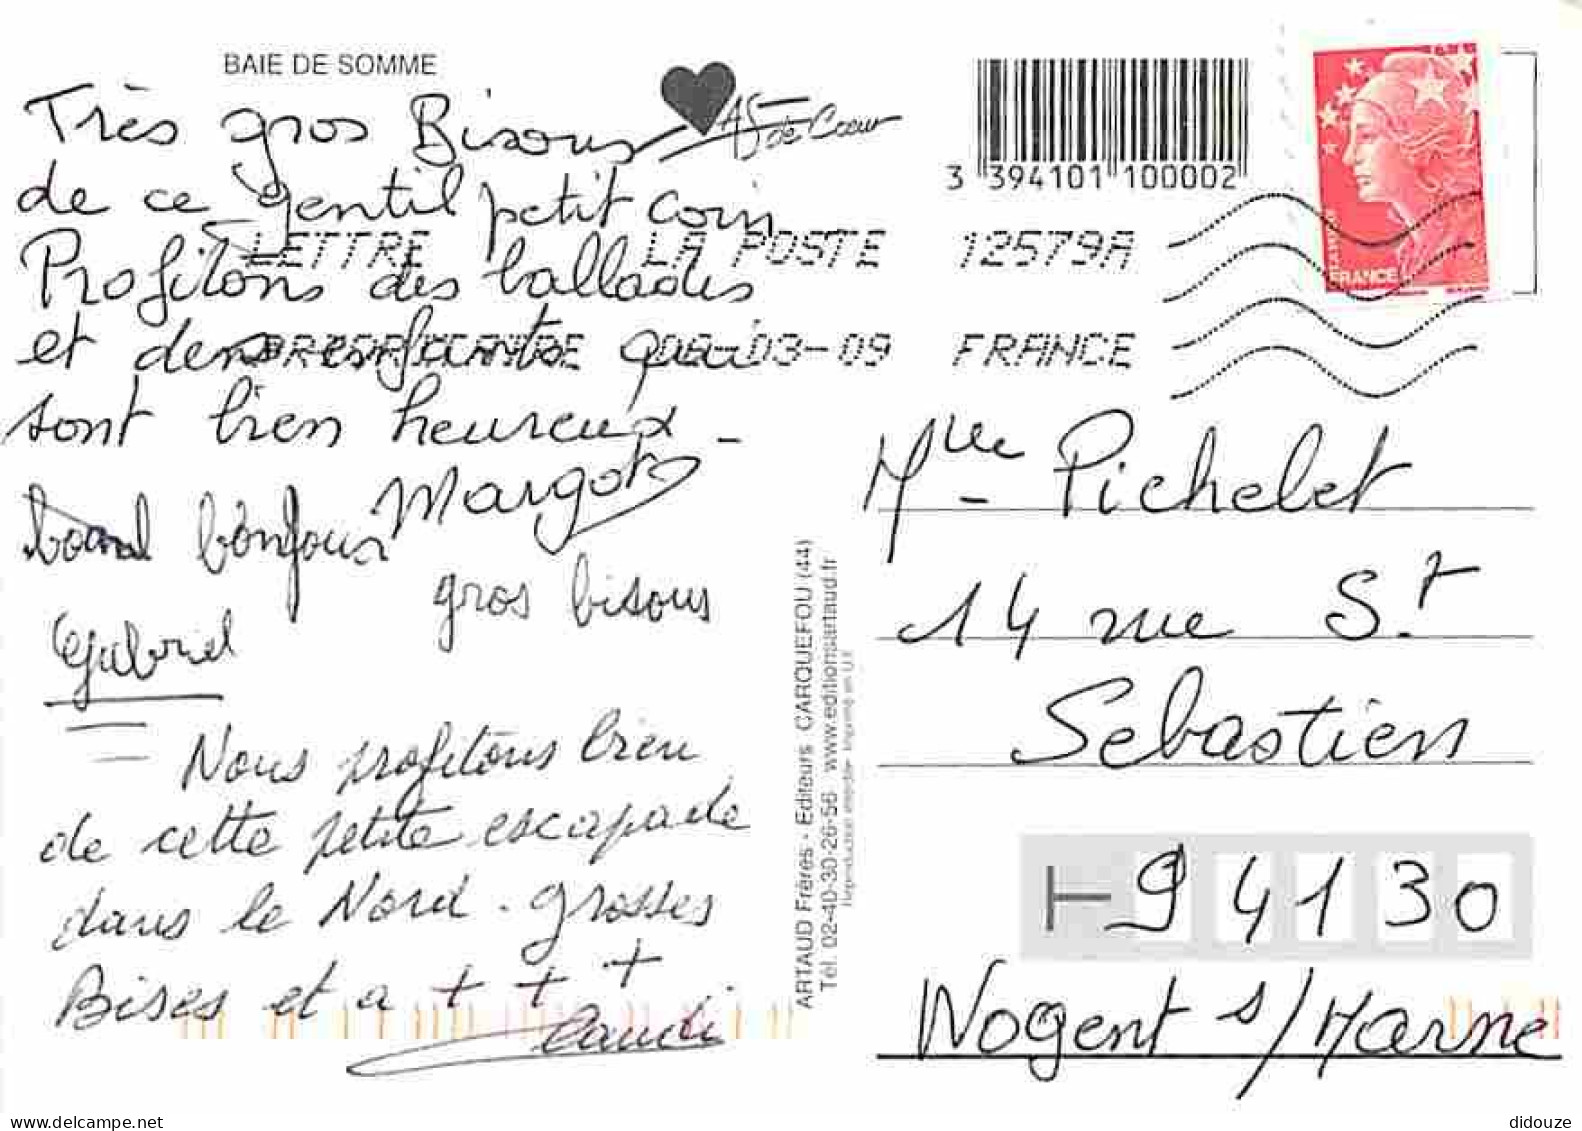 BAIE DE SOMME
Très gros Bisous
de ce gentil petit coin
Profitons des ballades
et des enfants qui
sont bien heureux -
Margot
bonjour
gros bisous
Gabriel
Nous profitons bien
de cette petite escapade
dans le Nord. grosses
Bises et a + + +
Claudi
AS de Coeur
3 394101 100002
FRANCE
LETTRE LA POSTE 12579A
08-03-09 FRANCE
ARTAUD Frères - Editeurs CARQUEFOU (44)
Tél. 02-40-30-26-56 www.editionsartaud.fr
Mlle Pichelet
14 rue St
Sebastien
94130
Nogent s/Marne
didouze